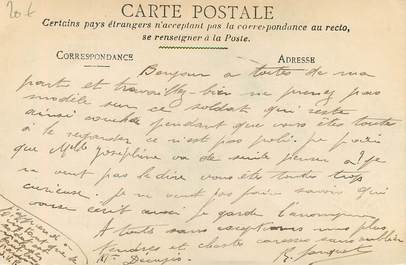 20 €
CARTE POSTALE
Certains pays étrangers n'acceptant pas la correspondance au recto,
se renseigner à la Poste.
CORRESPONDANCE
ADRESSE
Bonjour a toutes de ma
part et travaillez bien ne prenez pas
modèle sur ce soldat qui reste
ainsi couché pendant que vous êtes toutes
à le regarder ce n'est pas poli. Je
que Melle Joséphine va de suite penser à
ne veut pas le dire vous êtes toutes trop
curieuse. Je ne veut pas faire savoir qui
vous écrit aussi je garde l'anonyme
A toute sans exceptions mes plus
tendres et chastes caresses sans oublier
Mr